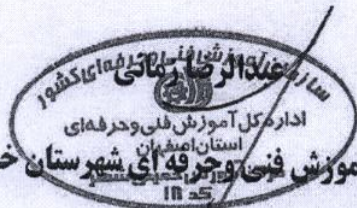 سازمان آموزش فنی و حرفه‌ای کشور
عبدالرضا زمانی
اداره کل آموزش فنی و حرفه‌ای
استان اصفهان
موزش فنی و حرفه ای شهرستان خ
کد ۱۸